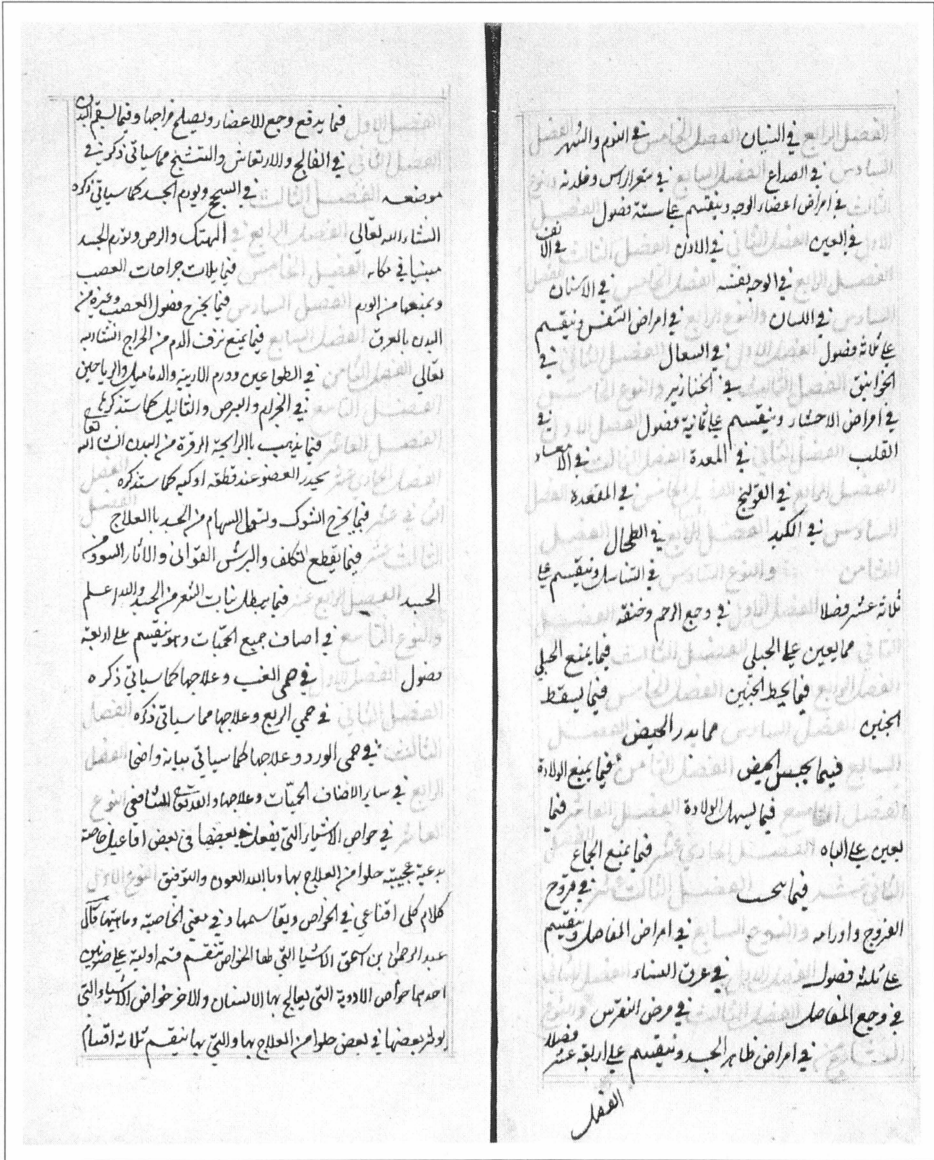 الفصل الرابع في النسيان الفصل الخامس في النوم والسهر الفصل
السادس في الصداع الفصل السابع في شعر الراس وطلوعه والنوع
الثالث في امراض اعضاء الوجه وينقسم على ستة فصول الفصل
الاول في العين الفصل الثاني في الاذن الفصل الثالث في الانف
الفصل الرابع في الوجه نفسه الفصل الخامس في الاسنان الفصل
السادس في اللسان والنوع الرابع في امراض التنفس وينقسم
على ثلاثة فصول الفصل الاول في السعال الفصل الثاني في
الخوانيق الفصل الثالث في الخنازير والنوع الخامس
في امراض الاحشاء وينقسم على ثمانية فصول الفصل الاول في
القلب الفصل الثاني في المعدة الفصل الثالث في الامعاء
الفصل الرابع في القولنج الفصل الخامس في المقعدة الفصل
السادس في الكبد الفصل السابع في الطحال الفصل
الثامن والنوع السادس في التناسل وينقسم على
ثلاثة عشر فصلا الفصل الاول في وجع الرحم وخنقه الفصل
الثاني مما يعين على الحبلى الفصل الثالث فيما يمنع الحبلى
الفصل الرابع فيما يحط الجنين الفصل الخامس فيما يسقط
الجنين الفصل السادس مما يدر الحيض الفصل
السابع فيما يحبس الحيض الفصل الثامن فيما يمنع الولادة
الفصل التاسع فيما يسهل الولادة الفصل العاشر فيما
يعين على الباه الفصل الحادي عشر فيما يمنع الجماع الفصل
الثاني عشر فيما الفصل الثالث عشر في قروح
الفروج واورامه والنوع السابع في امراض المفاصل وينقسم
على ثلثة فصول الفصل الاول في عرق النساء الفصل الثاني
في وجع المفاصل الفصل الثالث في مرض النقرس والنوع
الثامن في امراض ظاهر الجسد وينقسم على اربعة عشر فصلا
الفصل
الفصل الاول فيما يدفع وجع الاعضاء ويصلح مزاجها وفيما يسقم البدن
الفصل الثاني في الفالج والارتعاش والتشنج مما سياتي ذكره في
موضعه الفصل الثالث في السحج ويورم الجسد كما سياتي ذكره
انشاء الله تعالى الفصل الرابع في الهتك والرض وتورم الجسد
مبينا في مكانه الفصل الخامس فيما يلات جراحات العصب
ويمنعها من الورم الفصل السادس فيما يخرج فصول العصب وغيره من
البدن بالعرق الفصل السابع فيما يمنع نزف الدم من الجراح انشاء الله
تعالى الفصل الثامن في الطواعين وورم الاربية والدماميل والرياحين
الفصل التاسع في الجذام والبرص والثاليل كما ستذكرها
الفصل العاشر فيما يذهب بالرايحة الزفرة من البدن انشاء الله تعالى
الفصل الحادي عشر يخدر العضو عند قطعه او كيه كما ستذكره الفصل
الثاني عشر فيما يخرج الشوك والسهام من الجسد بالعلاج الفصل
الثالث عشر فيما يقطع الكلف والبرش القوابي والاثار السود من
الجسد الفصل الرابع عشر فيما يبطل نبات الشعر من الجسد والله اعلم
والنوع التاسع في اصناف جميع الحميات وهو ينقسم على اربعة
فصول الفصل الاول في حمى الغب وعلاجها كما سياتي ذكره
الفصل الثاني في حمى الربع وعلاجها مما سياتي ذكره الفصل
الثالث في حمى الورد وعلاجها كما سياتي بيانه واضحا الفصل
الرابع في ساير الاصناف الحميات وعلاجها والله الشافي النوع
العاشر في خواص الاشياء التي يفعل بعضها في بعض افاعيل خاصة
بدعية عجيبة خلوا من العلاج بها وبالله العون والتوفيق النوع الاول
كلام كلي اقناعي في الخواص ويقاسمها وفي معني الخاصية وماهيتها قال
عبد الرحمن بن اسحق الاشيا التي لها الخواص تنقسم قسمة اولية على ضربين
احدهما خواص الادوية التي يعالج بها الانسان والاخر خواص الاشياء التي
يوثر بعضها في بعض خلوا من العلاج بها والتي بها تنقسم ثلاثة اقسام